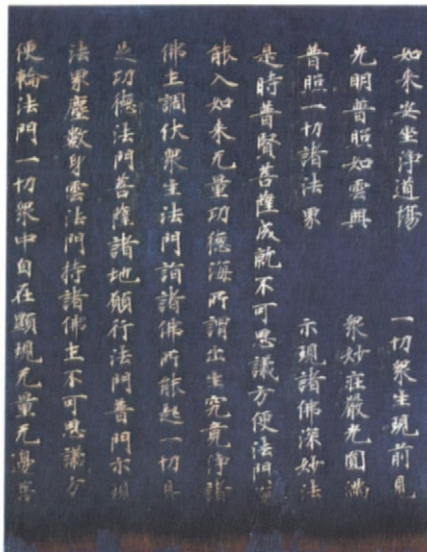 如來安坐淨道場 一切衆生現前見
光明普照如雲興 衆妙莊嚴光圓滿
普照一切諸法界 示現諸佛深妙法
是時普賢菩薩成就不可思議方便法門
能入如來无量功德海所謂出生究竟淨諸
佛土調伏衆生法門詣諸佛所能起一切具
足功德法門菩薩諸地願行法門普門示現
法界塵數身雲法門持諸佛土不可思議方
便輪法門一切衆中自在顯現无量无邊菩